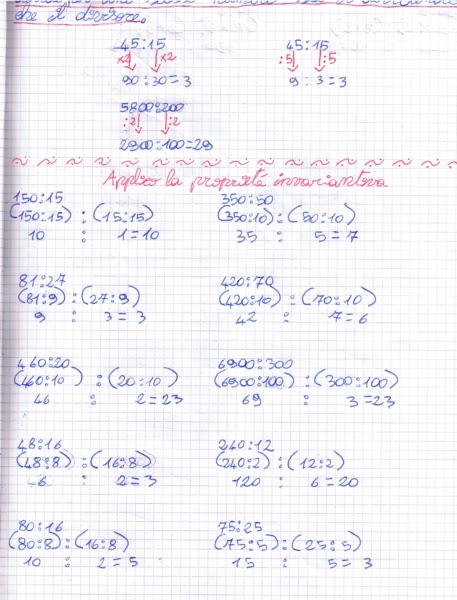 che il divisore.
45:15 45:15
x2 x2 :5 :5
90:30=3 9:3=3
5800:200
:2 :2
2900:100=29
Applico la proprietà invariantiva
150:15 350:50
(150:15) : (15:15) (350:10) : (50:10)
10 : 1=10 35 : 5=7
81:27 420:70
(81:9) : (27:9) (420:10) : (70:10)
9 : 3=3 42 : 7=6
460:20 6900:300
(460:10) : (20:10) (6900:100) : (300:100)
46 : 2=23 69 : 3=23
48:16 240:12
(48:8) : (16:8) (240:2) : (12:2)
6 : 2=3 120 : 6=20
80:16 75:25
(80:8) : (16:8) (75:5) : (25:5)
10 : 2=5 15 : 5=3